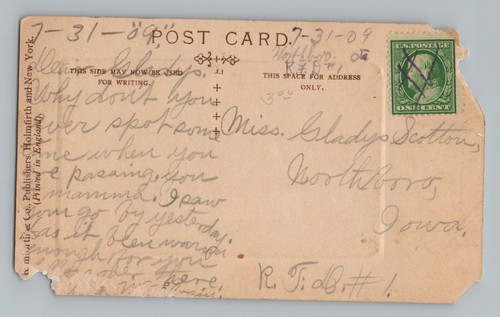 7-31-"09"
POST CARD.
7-31-09
Northboro.
Dear Gladys,
THIS SIDE MAY NOW BE USED
FOR WRITING.
THIS SPACE FOR ADDRESS
ONLY.
U.S. POSTAGE
ONE CENT
Why don't you
ever spot some
time when you
're passing. you
mamma. I saw
you go by yesterday.
as it been warm
enough for you
over here.
Miss. Gladys Scotton,
Northboro,
Iowa.
R.F.D.#1.
& Co. Publishers Holmfirth and New York.
(Printed in England)